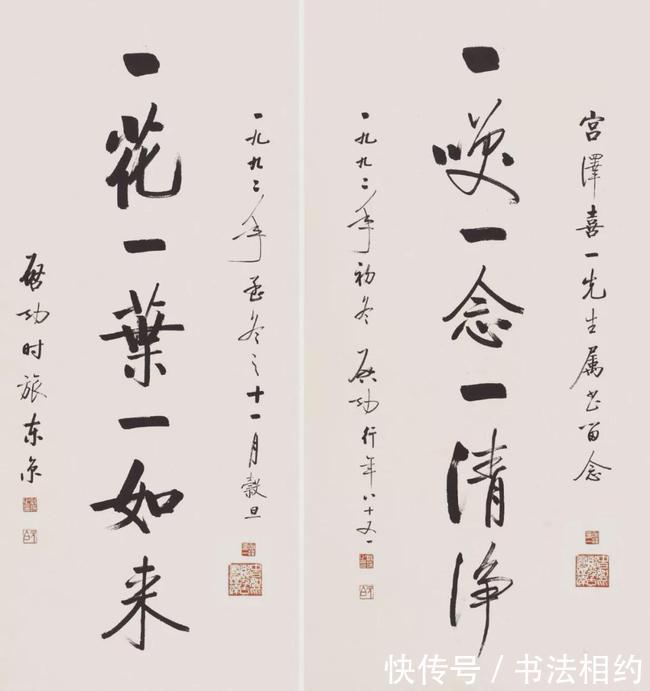 宫澤喜一先生属书留念
一咲一念一清淨
一九九二年初冬 启功行年八十又一
一九九二年孟冬之十一月穀旦
一花一葉一如来
启功时旅东京
快传号 / 书法相约